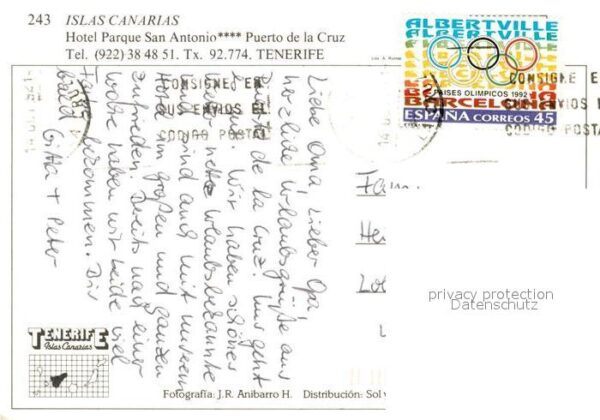 243 ISLAS CANARIAS
Hotel Parque San Antonio**** Puerto de la Cruz
Tel. (922) 38 48 51. Tx. 92.774. TENERIFE
ALBERTVILLE
ALBERTVILLE
PAISES OLIMPICOS 1992
BARCELONA
ESPAÑA CORREOS 45
CONSIGNE EN
SUS ENVIOS EL
CODIGO POSTAL
CONSIGNE E
ENVIOS
CODIGO POSTA
Liebe Oma, Lieber Opa!
herzliche Urlaubsgrüße aus
de la Cruz! Uns geht
Wir haben schönes
nette Urlaubsbekannte
sind auch mit unserem
im großen und ganzen
zufrieden. Bereits nach einer
Woche haben wir beide viel
Farbe bekommen. Bis
bald Gitta + Peter
privacy protection
Datenschutz
TENERIFE
Islas Canarias
Fotografía: J.R. Anibarro H. Distribución: Sol